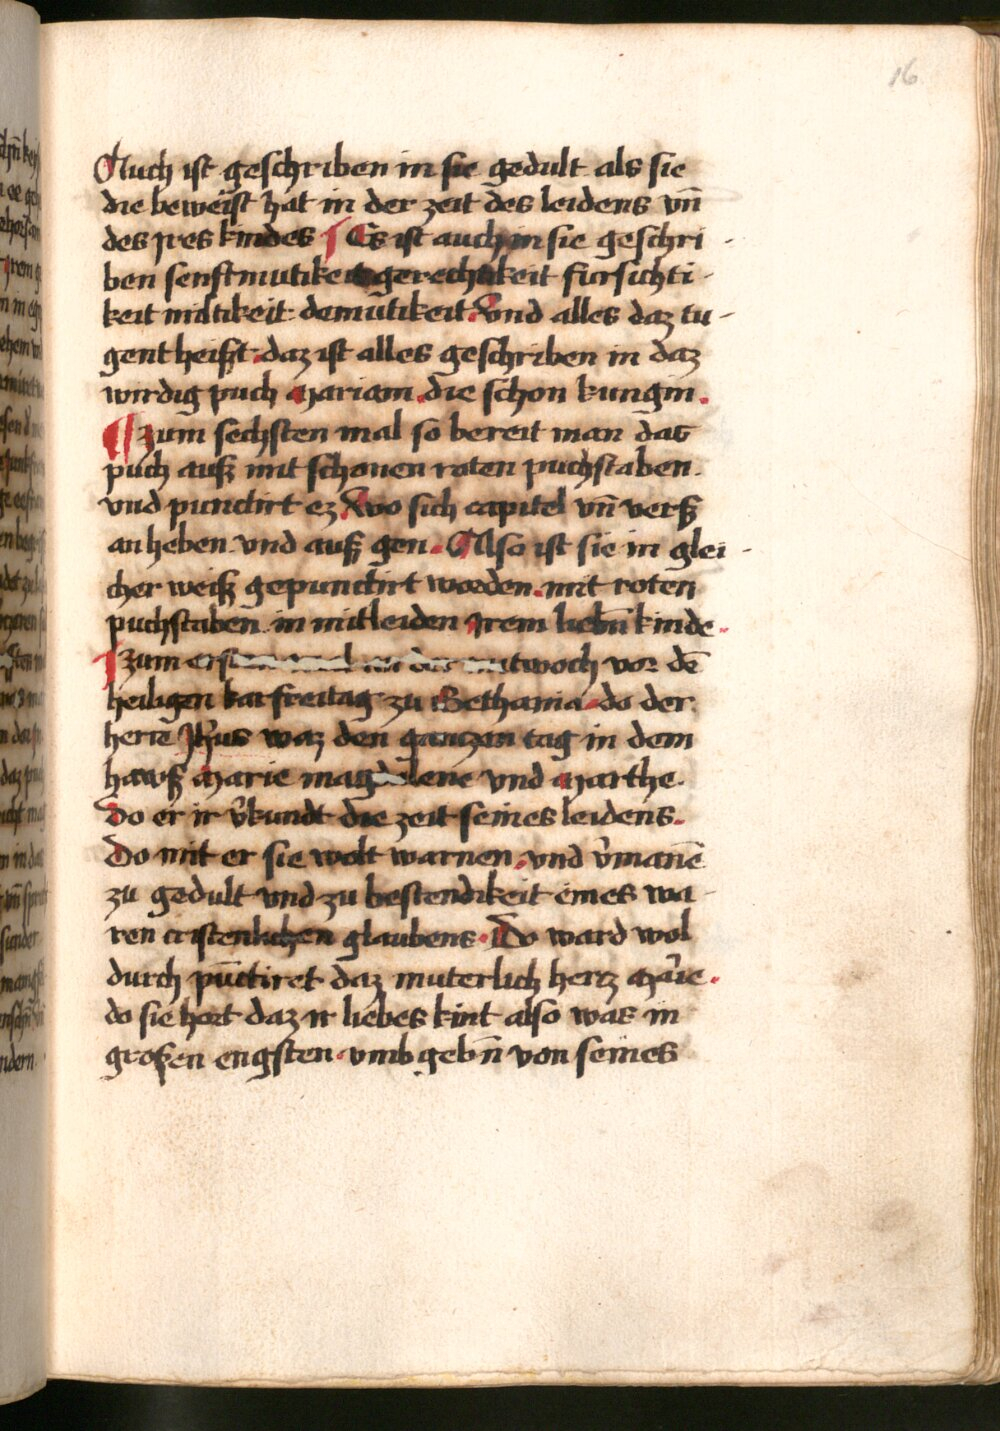 16
Auch ist geschriben in sie gedult als sie
die beweist hat in der zeit des leidens vn̄
des ires kindes Es ist auch in sie geschri-
ben senftmutikeit gerechtikeit fursichti-
keit miltikeit demutikeit. Vnd alles daz tu-
gent heist. daz ist alles geschriben in daz
wirdig puch Mariam. die schon kungin.
Zum sechsten mal so bereit man das
puch auß mit schonen roten puchstaben.
vnd punctirt ez. Wo sich capitel vn̄ verß
an heben vnd auß gen. Also ist sie in glei-
cher weiß gepunctirt worden. mit roten
puchstaben. in mitleiden Irem liebn̄ kinde.
Zum ersten mal an der mitwoch vor dē
heiligen karfreitag zu Bethania. do der
herre Jhūs waz den gantzen tag in dem
hawß Marie magdalene vnd Marthe.
Do er ir v̄kundt die zeit seines leidens.
Do mit er sie wolt warnen. vnd v̄manē
zu gedult vnd zu bestendikeit eines wa-
ren cristenlichen glaubens. Do ward wol
durch pūctiret daz muterlich hertz Mārie.
do sie hort daz ir liebes kint also was in
großen engsten. vmb gebn̄ von seines